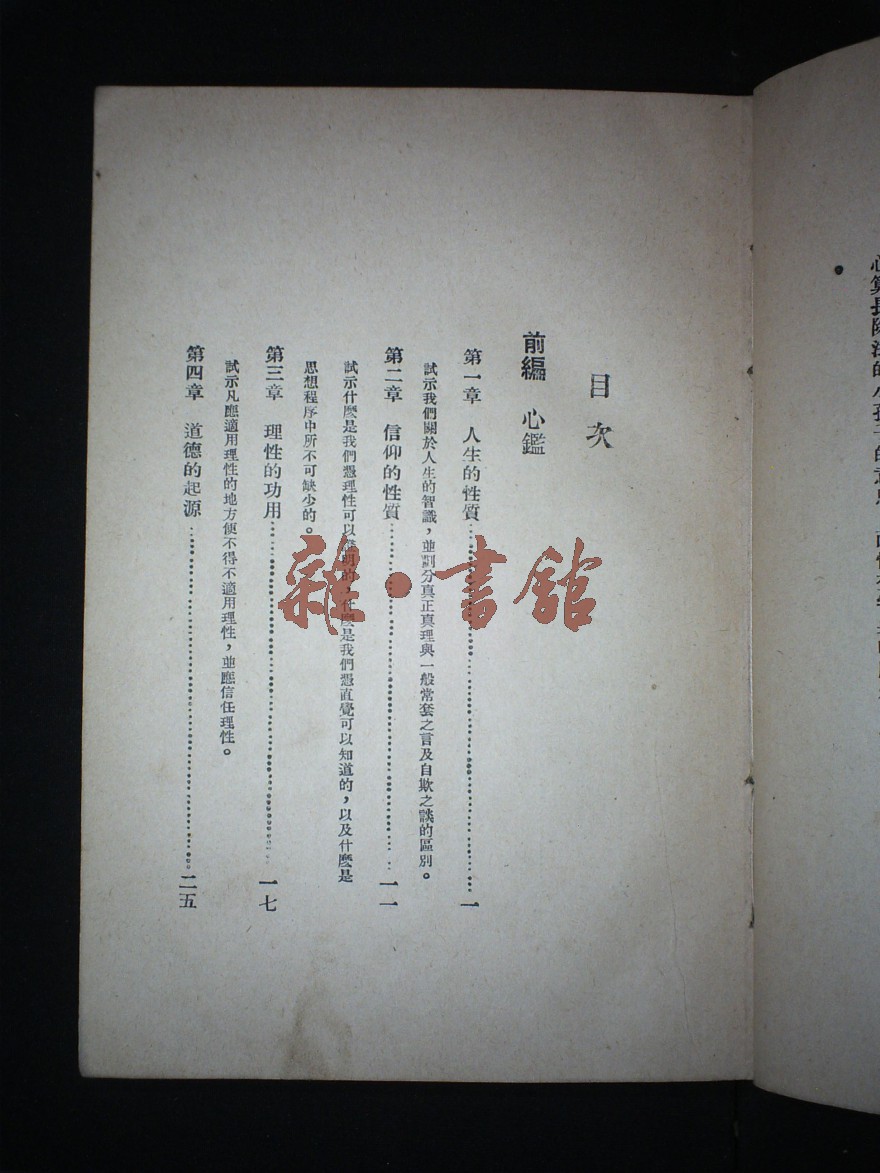 目次
前編 心鑑
第一章 人生的性質……一
試示我們關於人生的智識，並劃分真正真理與一般常套之言及自欺之談的區別。
第二章 信仰的性質……一一
試示什麼是我們憑理性可以證明的，什麼是我們憑直覺可以知道的，以及什麼是
思想程序中所不可缺少的。
第三章 理性的功用……一七
試示凡應適用理性的地方便不得不適用理性，並應信任理性。
第四章 道德的起源……二五
雜·書館